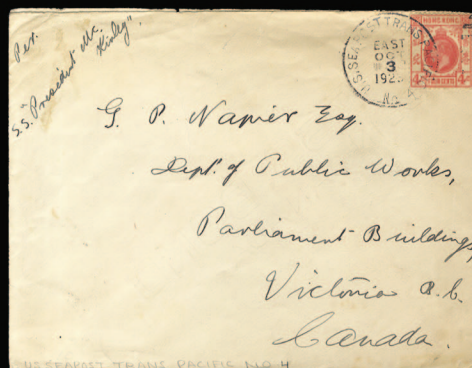 Per.
S.S. "President Mc.
Kinley".
HONG KONG
U.S. SEAPOST TRANS
EAST
OCT
3
192
No. 4
G. P. Napier Esq.
Dept. of Public Works,
Parliament Buildings,
Victoria B.C.
Canada.
US SEAPOST TRANS PACIFIC NO 4